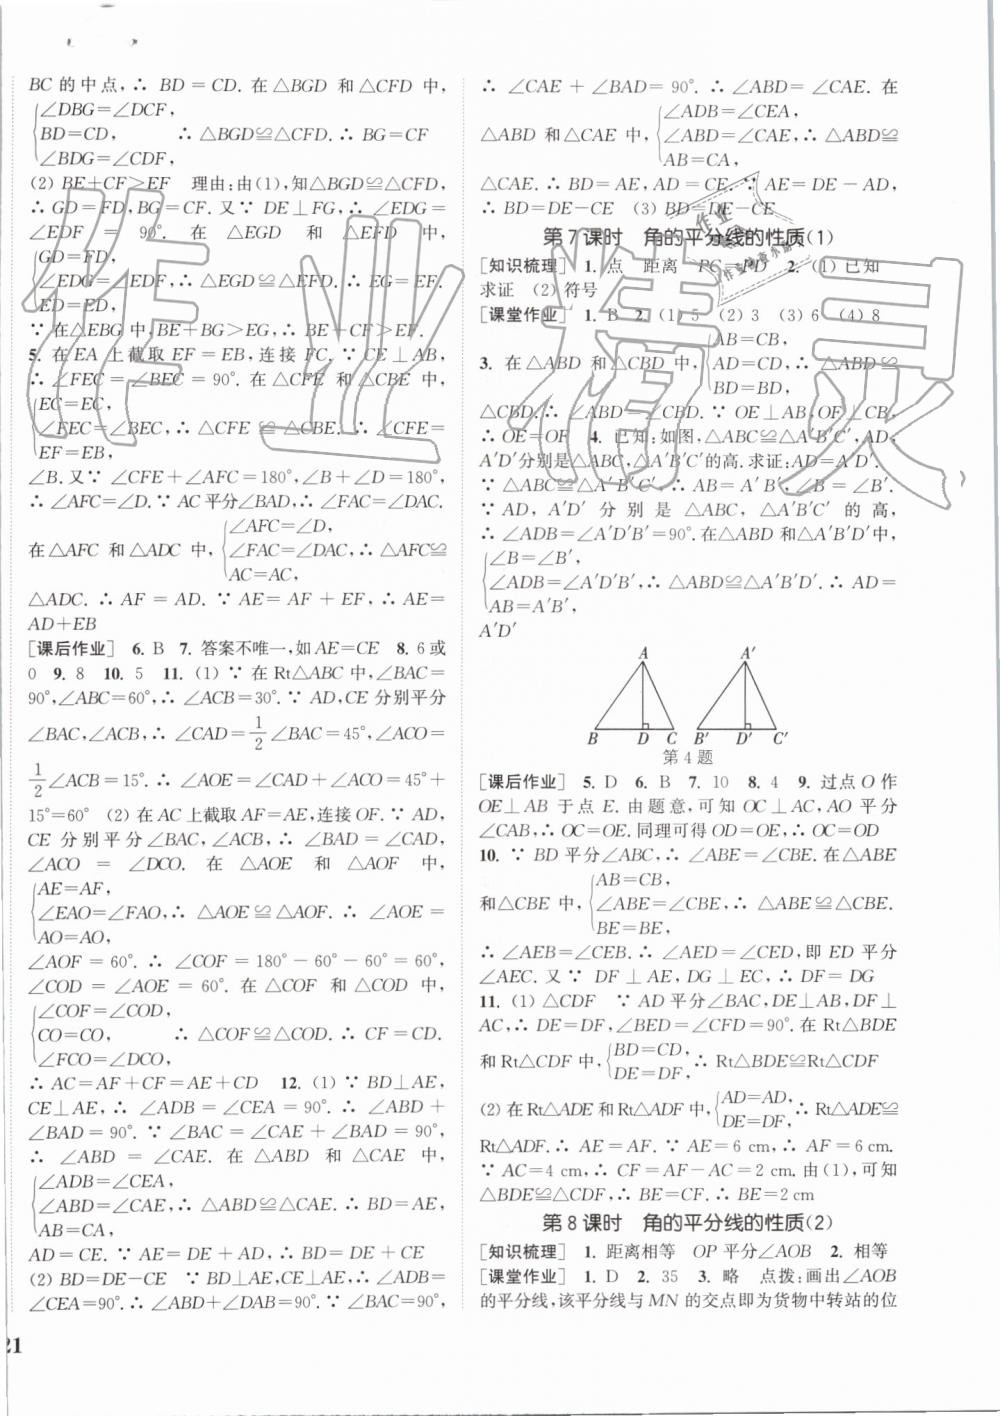 BC 的中点,∴ BD=CD. 在△BGD 和△CFD 中,
∠DBG=∠DCF,
BD=CD, ∴ △BGD≌△CFD. ∴ BG=CF
∠BDG=∠CDF,
(2) BE+CF>EF 理由:由(1),知△BGD≌△CFD,
∴ GD=FD,BG=CF. 又∵ DE⊥FG,∴ ∠EDG=
∠EDF = 90°. 在 △EGD 和 △EFD 中,
GD=FD,
∠EDG=∠EDF,∴ △EGD≌△EFD. ∴ EG=EF.
ED=ED,
∵ 在△EBG 中,BE+BG>EG,∴ BE+CF>EF.
5. 在 EA 上截取 EF=EB,连接 FC. ∵ CE⊥AB,
∴ ∠FEC=∠BEC=90°. 在△CFE 和△CBE 中,
EC=EC,
∠FEC=∠BEC,∴ △CFE≌△CBE. ∴ ∠CFE=
EF=EB,
∠B. 又∵ ∠CFE+∠AFC=180°,∠B+∠D=180°,
∴ ∠AFC=∠D. ∵ AC 平分∠BAD,∴ ∠FAC=∠DAC.
∠AFC=∠D,
在△AFC 和△ADC 中, ∠FAC=∠DAC,∴ △AFC≌
AC=AC,
△ADC. ∴ AF=AD. ∵ AE=AF+EF,∴ AE=
AD+EB
[课后作业] 6. B 7. 答案不唯一,如 AE=CE 8. 6 或
0 9. 8 10. 5 11. (1) ∵ 在 Rt△ABC 中,∠BAC=
90°,∠ABC=60°,∴ ∠ACB=30°. ∵ AD,CE 分别平分
∠BAC,∠ACB,∴ ∠CAD=1/2∠BAC=45°,∠ACO=
1/2∠ACB=15°. ∴ ∠AOE=∠CAD+∠ACO=45°+
15°=60° (2) 在 AC 上截取 AF=AE,连接 OF. ∵ AD,
CE 分别平分∠BAC,∠ACB,∴ ∠BAD=∠CAD,
∠ACO = ∠DCO. 在 △AOE 和 △AOF 中,
AE=AF,
∠EAO=∠FAO,∴ △AOE≌△AOF. ∴ ∠AOE=
AO=AO,
∠AOF=60°. ∴ ∠COF=180°-60°-60°=60°,
∠COD=∠AOE=60°. 在△COF 和△COD 中,
∠COF=∠COD,
CO=CO, ∴ △COF≌△COD. ∴ CF=CD.
∠FCO=∠DCO,
∴ AC=AF+CF=AE+CD 12. (1) ∵ BD⊥AE,
CE⊥AE,∴ ∠ADB=∠CEA=90°. ∴ ∠ABD+
∠BAD=90°. ∵ ∠BAC=∠CAE+∠BAD=90°,
∴ ∠ABD=∠CAE. 在△ABD 和△CAE 中,
∠ADB=∠CEA,
∠ABD=∠CAE,∴ △ABD≌△CAE. ∴ BD=AE,
AB=CA,
AD=CE. ∵ AE=DE+AD,∴ BD=DE+CE
(2) BD=DE-CE ∵ BD⊥AE,CE⊥AE,∴ ∠ADB=
∠CEA=90°. ∴ ∠ABD+∠DAB=90°. ∵ ∠BAC=90°,
21
∴ ∠CAE+∠BAD=90°. ∴ ∠ABD=∠CAE. 在
∠ADB=∠CEA,
△ABD 和△CAE 中, ∠ABD=∠CAE,∴ △ABD≌
AB=CA,
△CAE. ∴ BD=AE,AD=CE. ∵ AE=DE-AD,
∴ BD=DE-CE (3) BD=DE-CE
第 7 课时 角的平分线的性质(1)
[知识梳理] 1. 点 距离 PC=PD 2. (1) 已知
求证 (2) 符号
[课堂作业] 1. B 2. (1) 5 (2) 3 (3) 6 (4) 8
AB=CB,
3. 在△ABD 和△CBD 中, AD=CD,∴ △ABD≌
BD=BD,
△CBD. ∴ ∠ABD=∠CBD. ∵ OE⊥AB,OF⊥CB,
∴ OE=OF 4. 已知:如图,△ABC≌△A′B′C′,AD,
A′D′分别是△ABC,△A′B′C′的高. 求证:AD=A′D′.
∵ △ABC≌△A′B′C′,∴ AB=A′B′,∠B=∠B′.
∵ AD, A′D′ 分别是 △ABC, △A′B′C′ 的高,
∴ ∠ADB=∠A′D′B′=90°. 在△ABD 和△A′B′D′中,
∠B=∠B′,
∠ADB=∠A′D′B′,∴ △ABD≌△A′B′D′. ∴ AD=
AB=A′B′,
A′D′
A A′
B D C B′ D′ C′
第 4 题
[课后作业] 5. D 6. B 7. 10 8. 4 9. 过点 O 作
OE⊥AB 于点 E. 由题意,可知 OC⊥AC,AO 平分
∠CAB,∴ OC=OE. 同理可得 OD=OE,∴ OC=OD
10. ∵ BD 平分∠ABC,∴ ∠ABE=∠CBE. 在△ABE
AB=CB,
和△CBE 中, ∠ABE=∠CBE,∴ △ABE≌△CBE.
BE=BE,
∴ ∠AEB=∠CEB. ∴ ∠AED=∠CED,即 ED 平分
∠AEC. 又∵ DF⊥AE,DG⊥EC,∴ DF=DG
11. (1) △CDF ∵ AD 平分∠BAC,DE⊥AB,DF⊥
AC,∴ DE=DF,∠BED=∠CFD=90°. 在 Rt△BDE
和 Rt△CDF 中, BD=CD, DE=DF, ∴ Rt△BDE≌Rt△CDF
(2) 在 Rt△ADE 和 Rt△ADF 中, AD=AD, DE=DF, ∴ Rt△ADE≌
Rt△ADF. ∴ AE=AF. ∵ AE=6 cm,∴ AF=6 cm.
∵ AC=4 cm,∴ CF=AF-AC=2 cm. 由(1),可知
△BDE≌△CDF,∴ BE=CF. ∴ BE=2 cm
第 8 课时 角的平分线的性质(2)
[知识梳理] 1. 距离相等 OP 平分∠AOB 2. 相等
[课堂作业] 1. D 2. 35 3. 略 点拨:画出∠AOB
的平分线,该平分线与 MN 的交点即为货物中转站的位
作业精灵